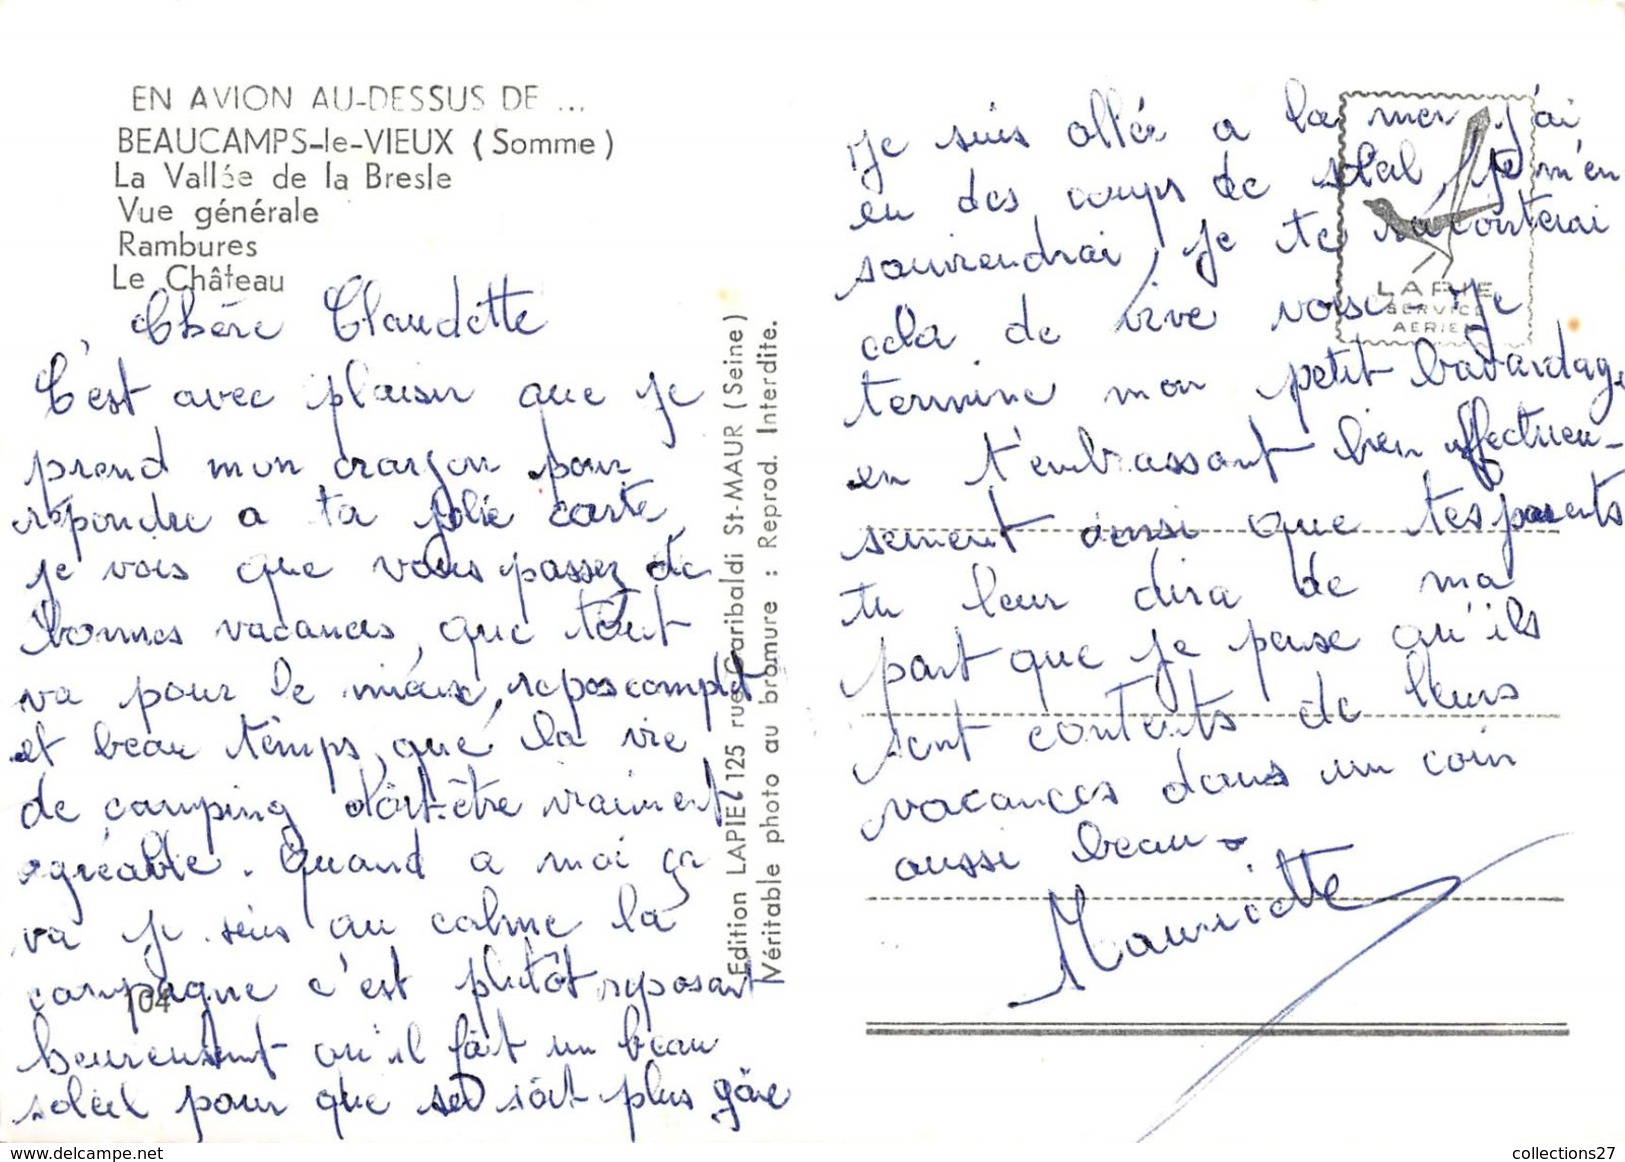 EN AVION AU-DESSUS DE ...
BEAUCAMPS-le-VIEUX (Somme)
La Vallée de la Bresle
Vue générale
Rambures
Le Château
Chère Claudette
C'est avec plaisir que je
prend mon crayon pour
répondre a ta jolie carte,
je vois que vous passez de
bonnes vacances, que tout
va pour le mieux, repos complet
et beau temps, que la vie
de camping doit-être vraiment
agréable. Quand a moi ça
va je suis au calme la
campagne c'est plutôt reposant
heureusement qu'il fait un beau
soleil pour que se soit plus gaie
104
Edition LAPIE 125 rue Garibaldi St-MAUR (Seine)
Véritable photo au bromure : Reprod. Interdite.
LAPIE
SERVICE
AERIEN
Je suis allée a la mer j'ai
eu des coups de soleil, je m'en
souviendrai, je te raconterai
cela de vive voise. Je
termine mon petit bavardage
en t'embrassant bien affectueu-
sement ainsi que tes parents
tu leur dira de ma
part que je pense qu'ils
sont contents de leurs
vacances dans un coin
aussi beau.
Mauricette
delcampe.net
collections27